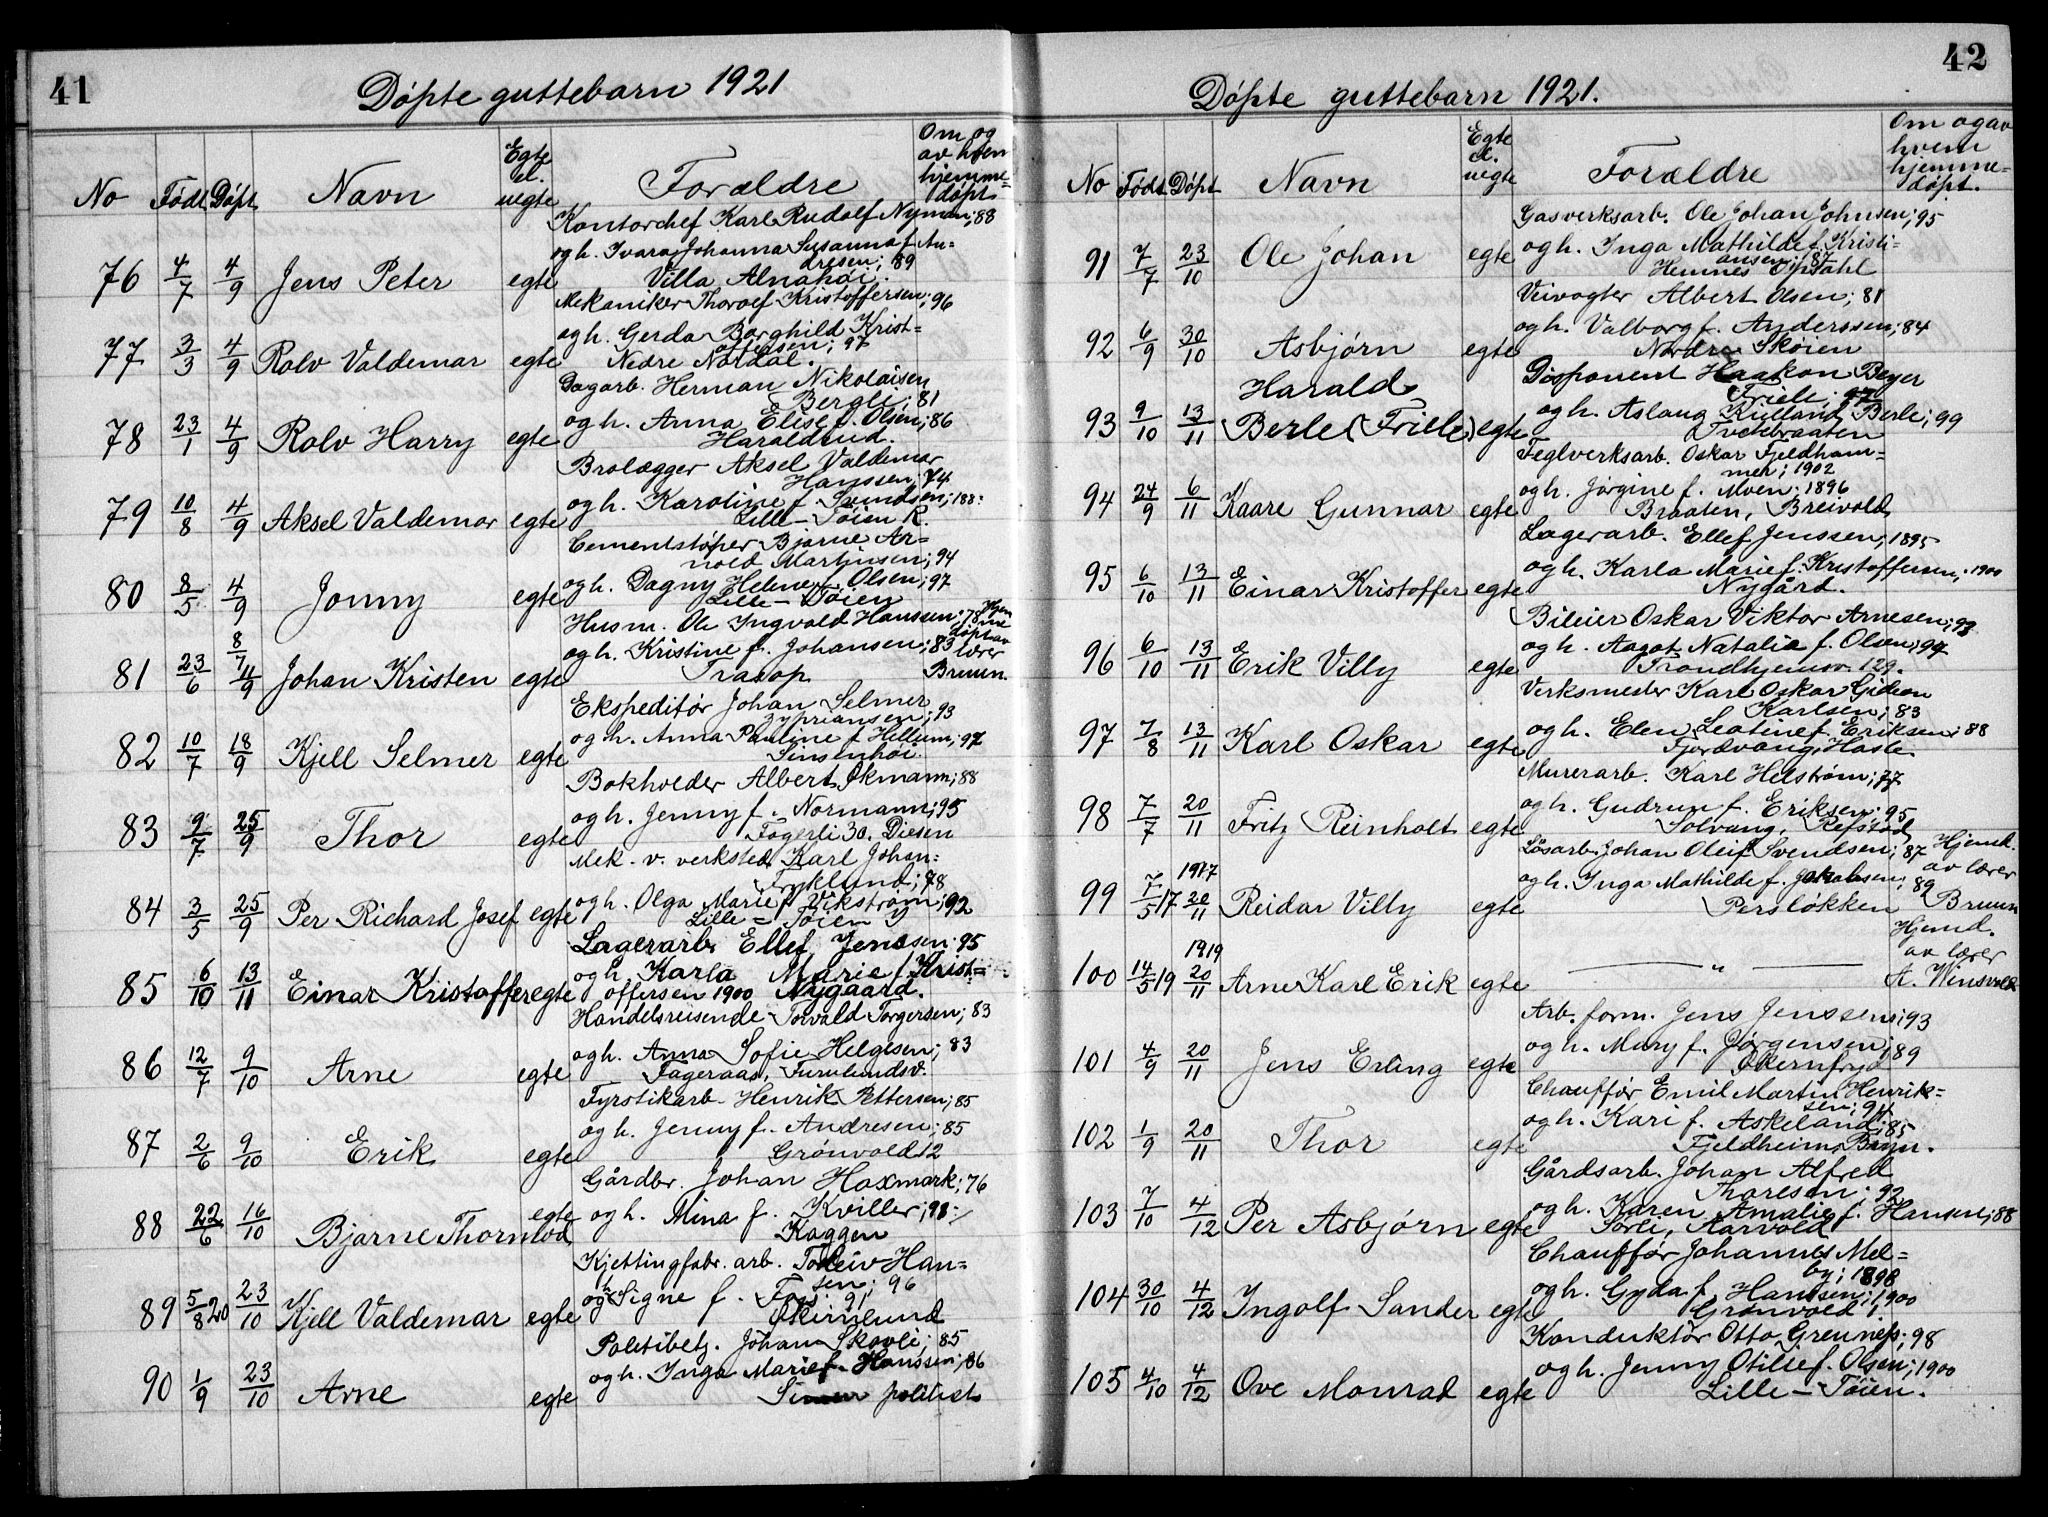 41
Døpte guttebarn 1921
No Født Døpt Navn Egte el. uegte Forældre Om og av hvem hjemme-døpt
Kontorchef Karl Rudolf Nyman; 88
og h. Ivara Johanna Susanna f. An-
dresen; 89
76 4/7 4/9 Jens Peter egte Villa Alnahøi.
Mekaniker Thorolf Kristoffersen; 96
og h. Gerda Borghild Krist-
offersen; 97
77 3/3 4/9 Rolv Valdemar egte Nedre Nordal.
Dagarb. Herman Nikolaisen
Bergli; 81
og h. Anna Elise f. Olsen; 86
78 23/1 4/9 Rolv Harry egte Haraldrud.
Brolægger Aksel Valdemar
Hanssen; 74
og h. Karoline f. Svendsen; 188
79 10/8 4/9 Aksel Valdemar egte Lille-Tøien R.
Cementstøper Bjarne Ar-
nold Martinsen; 94
og h. Dagny Helene f. Olsen; 97
80 8/5 4/9 Jonny egte Lille-Tøien
Husm. Ole Ingvald Hanssen; 78 Hjem
me
døpt av
og h. Kristine f. Johansen; 83 lærer
81 23/6 8/7 11/9 Johan Kristen egte Trasop Bruun.
Ekspeditør Johan Selmer
Zypriansen; 93
og h. Anna Pauline f. Hellum; 97
82 10/7 18/9 Kjell Selmer egte Sinsenhøi
Bokholder Albert Økmann; 88
og h. Jenny f. Normann; 95
83 9/7 25/9 Thor egte Fagerli 30. Disen
Mek. v. verksted Karl Johan
Fryklund; 78
og h. Olga Marie f. Vikstrøm; 92
84 3/5 25/9 Per Richard Josef egte Lille-Tøien Y
Lagerarb Ellef Jenssen 95
og h. Karla Marie f. Krist-
85 6/10 13/11 Einar Kristoffer egte offersen 1900 Nygaard.
Handelsreisende Torvald Torgersen; 83
og h. Anna Sofie Helgesen; 83
86 12/7 9/10 Arne egte Fageraas, Furulundsv.
Fyrstikarb. Henrik Pettersen; 85
og h. Jenny f. Andresen; 85
87 2/6 9/10 Erik egte Grönvold 12
Gårdbr. Johan Hoxmark; 76
og h. Mina f. Kviller; 98
88 22/6 16/10 Bjarne Thormod egte Kaggen
Kjettingfabr. arb. Torleiv Han-
sen; 96
og h Signe f. Foss 91
89 5/8 20 23/10 Kjell Valdemar egte Økernlund
Politibetj. Johan Skovli; 85
og h. Inga Marie f. Hanssen; 86
90 1/9 23/10 Arne egte Sinsen politist
42
Døpte guttebarn 1921.
No Født Døpt Navn Egte el. uegte Forældre Om og av hvem hjemme-døpt.
Gasverksarb. Ole Johan Johnsen; 95
og h. Inga Mathilde f. Kristi-
ansen; 87
91 7/7 23/10 Ole Johan egte Hemnes Opsahl
Veivogter Albert Olsen; 81
og h. Valborg f. Anderssen; 84
92 6/9 30/10 Asbjørn egte Nordre Skøien
Disponent Haakon Beyer
Friele; 97
Harald
og h. Aslaug Kulland Berle; 99
93 9/10 13/11 Berle (Friele) egte Tvetebraaten
Teglverksarb. Oskar Fjeldham-
mer; 1902
og h. Jørgine f. Moen. 1896
94 24/9 6/11 Kaare Gunnar egte Braaten, Breivold
Lagerarb. Ellef Jenssen; 1895
og h. Karla Marie f. Kristoffersen; 1900
95 6/10 13/11 Einar Kristoffer egte Nygård.
Bileier Oskar Viktor Arnesen; 93
og h. Aagot Natalia f. Olsen; 97
96 6/10 13/11 Erik Villy egte Trondhjemsv. 129.
Verksmester Karl Oskar Gideon
Karlsen; 83
og h. Elen Leotine f. Eriksen; 88
97 7/8 13/11 Karl Oskar egte Fjordvang, Hasle.
Murerarb. Karl Helstrøm; 77
og h. Gudrun f. Eriksen; 95
98 7/7 20/11 Fritz Reinholt egte Solvang, Refstad
Løsarb. Johan Oleif Svendsen; 87 Hjemd.
av lærer
og h. Inga Mathilde f. Jakobsen; 89
99 7/5 17 1917 20/11 Reidar Villy egte Persløkken Bruun
Hjemd.
av lærer
100 14/5 19 1919 20/11 Arne Karl Erik egte — " — A. Winsvold
Arb. form. Jens Jenssen; 93
og h. Mary f. Jørgensen; 89
101 4/9 20/11 Jens Erling egte Økernfryd
Chauffør Emil Martin Henrik-
sen; 94
og h. Kari f. Askeland; 85
102 1/9 20/11 Thor egte Fjeldheim, Bryn.
Gårdsarb. Johan Alfred
Thoresen; 92
og h. Karen Amalie f. Hansen; 88
103 7/10 4/12 Per Asbjørn egte Sørli, Aarvold
Chauffør Johannes Mel-
by; 1898
og h. Gyda f. Hansen; 1900
104 30/10 4/12 Ingolf Sander egte Grønvold 1,
Konduktör Otto Greuness; 98
og h. Jenny Otilie f. Olsen; 1900
105 4/10 4/12 Ove Monrad egte Lille-Tøien.